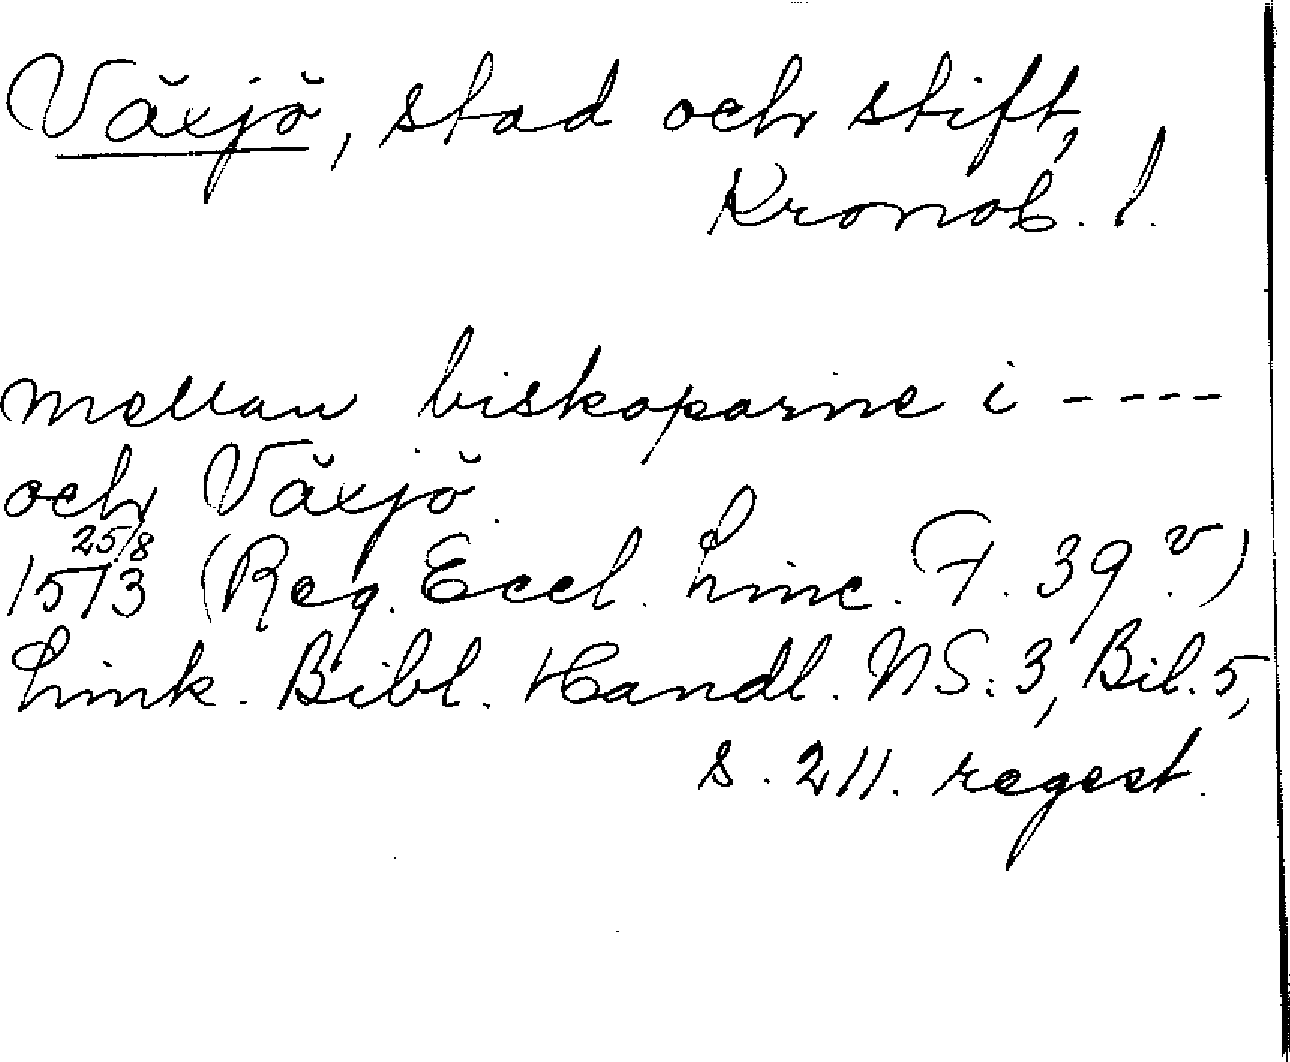 Växjö, stad och stift,
Kronob. l.
mellan biskoparne i ----
och Växjö.
25/8
1513 (Reg. Eccl. Linc. F. 39 v.)
Link. Bibl. Handl. NS: 3, Bil. 5,
s. 211. regest.